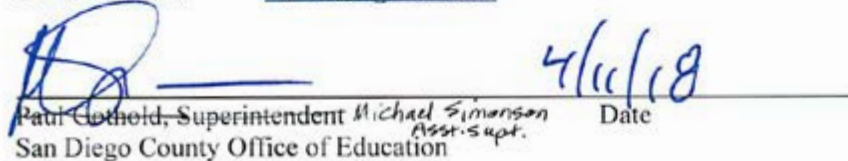 4/11/18
Paul Gothold, Superintendent Michael Simonson Date
Asst. Supt.
San Diego County Office of Education